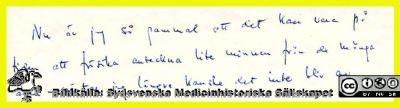 Nu är jag så gammal att det kan vara på
tiden att försöka anteckna lite minnen från de många
längre kanske det inte blir av
Bildkälla: Sydsvenska Medicinhistoriska Sällskapet